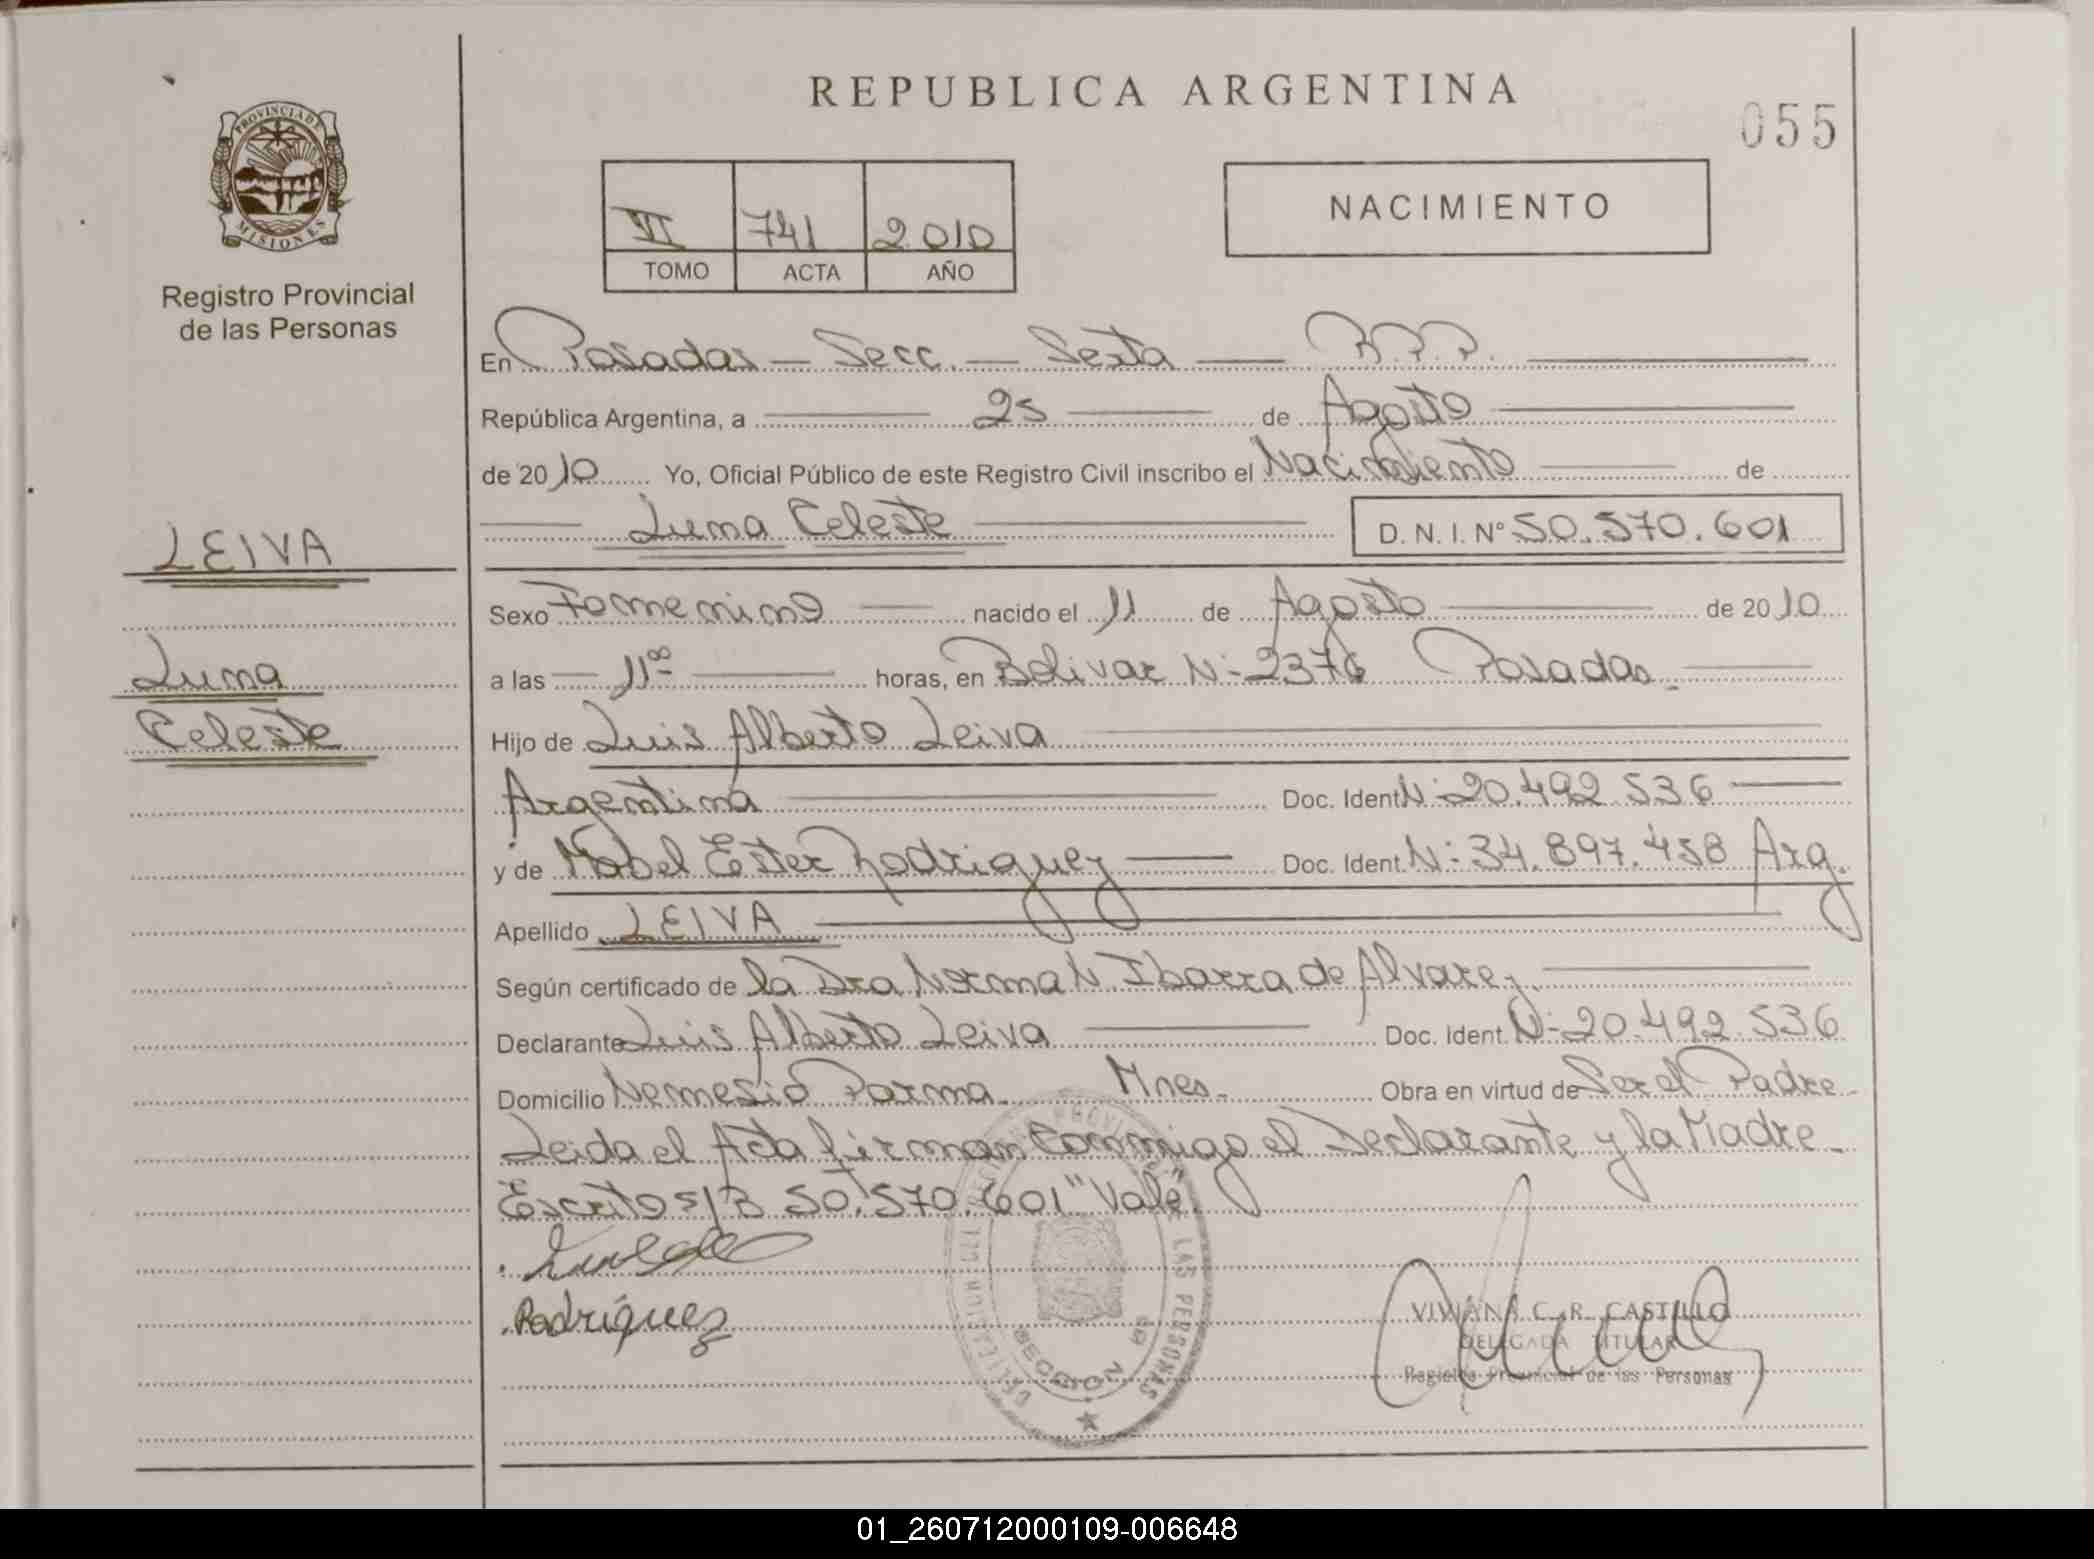 REPUBLICA ARGENTINA
055
PROVINCIA DE MISIONES
Registro Provincial
de las Personas
VI 741 2010
TOMO ACTA AÑO
NACIMIENTO
En Posadas — Secc. — Sexta — R.P.P.
República Argentina, a 25 de Agosto
de 2010 Yo, Oficial Público de este Registro Civil inscribo el Nacimiento de
Luma Celeste D. N. I. N° 50.570.601
LEIVA
Luma
Celeste
Sexo Femenino nacido el 11 de Agosto de 2010
a las 11⁰⁰ horas, en Bolivar N:2376 Posadas
Hijo de Luis Alberto Leiva
Argentina Doc. Ident N:20.492.536
y de Mabel Ester Rodriguez Doc. Ident. N:34.897.458 Arg.
Apellido LEIVA
Según certificado de la Dra Norma N. Ibarra de Alvarez
Declarante Luis Alberto Leiva Doc. Ident. N:20.492.536
Domicilio Nemesio Parma Mnes. Obra en virtud de Ser el Padre
Leida el Acta firman Conmigo el Declarante y la Madre
Escrito s/R 50.570.601" Vale
Rodríguez
DELEGACION DEL REGISTRO PROVINCIAL DE LAS PERSONAS
SECCION 6a
VIVIANA C. R. CASTILLO
DELEGADA TITULAR
Registro Provincial de las Personas
01_260712000109-006648